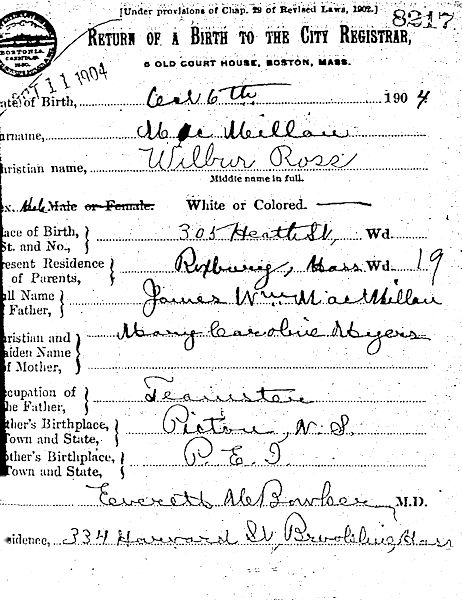 [Under provisions of Chap. 29 of Revised Laws, 1902.]
8217
RETURN OF A BIRTH TO THE CITY REGISTRAR,
6 OLD COURT HOUSE, BOSTON, MASS.
BOSTONIA
OCT 11 1904
ate of Birth, Oct 6th 1904
urname, MacMillan
hristian name, Wilbur Ross
Middle name in full.
ex. Male Male or Female. White or Colored.
lace of Birth, St. and No., 305 Heath St, Wd.
resent Residence of Parents, Roxbury, Mass Wd. 19
ull Name Father, James Wm MacMillan
hristian and aiden Name of Mother, Mary Caroline Myers
ccupation of he Father, Teamster
ther's Birthplace, Town and State, Pictou, N.S.
other's Birthplace, Town and State, P.E.I.
Everett M Bowker M.D.
sidence, 334 Harvard St, Brookline, Mass